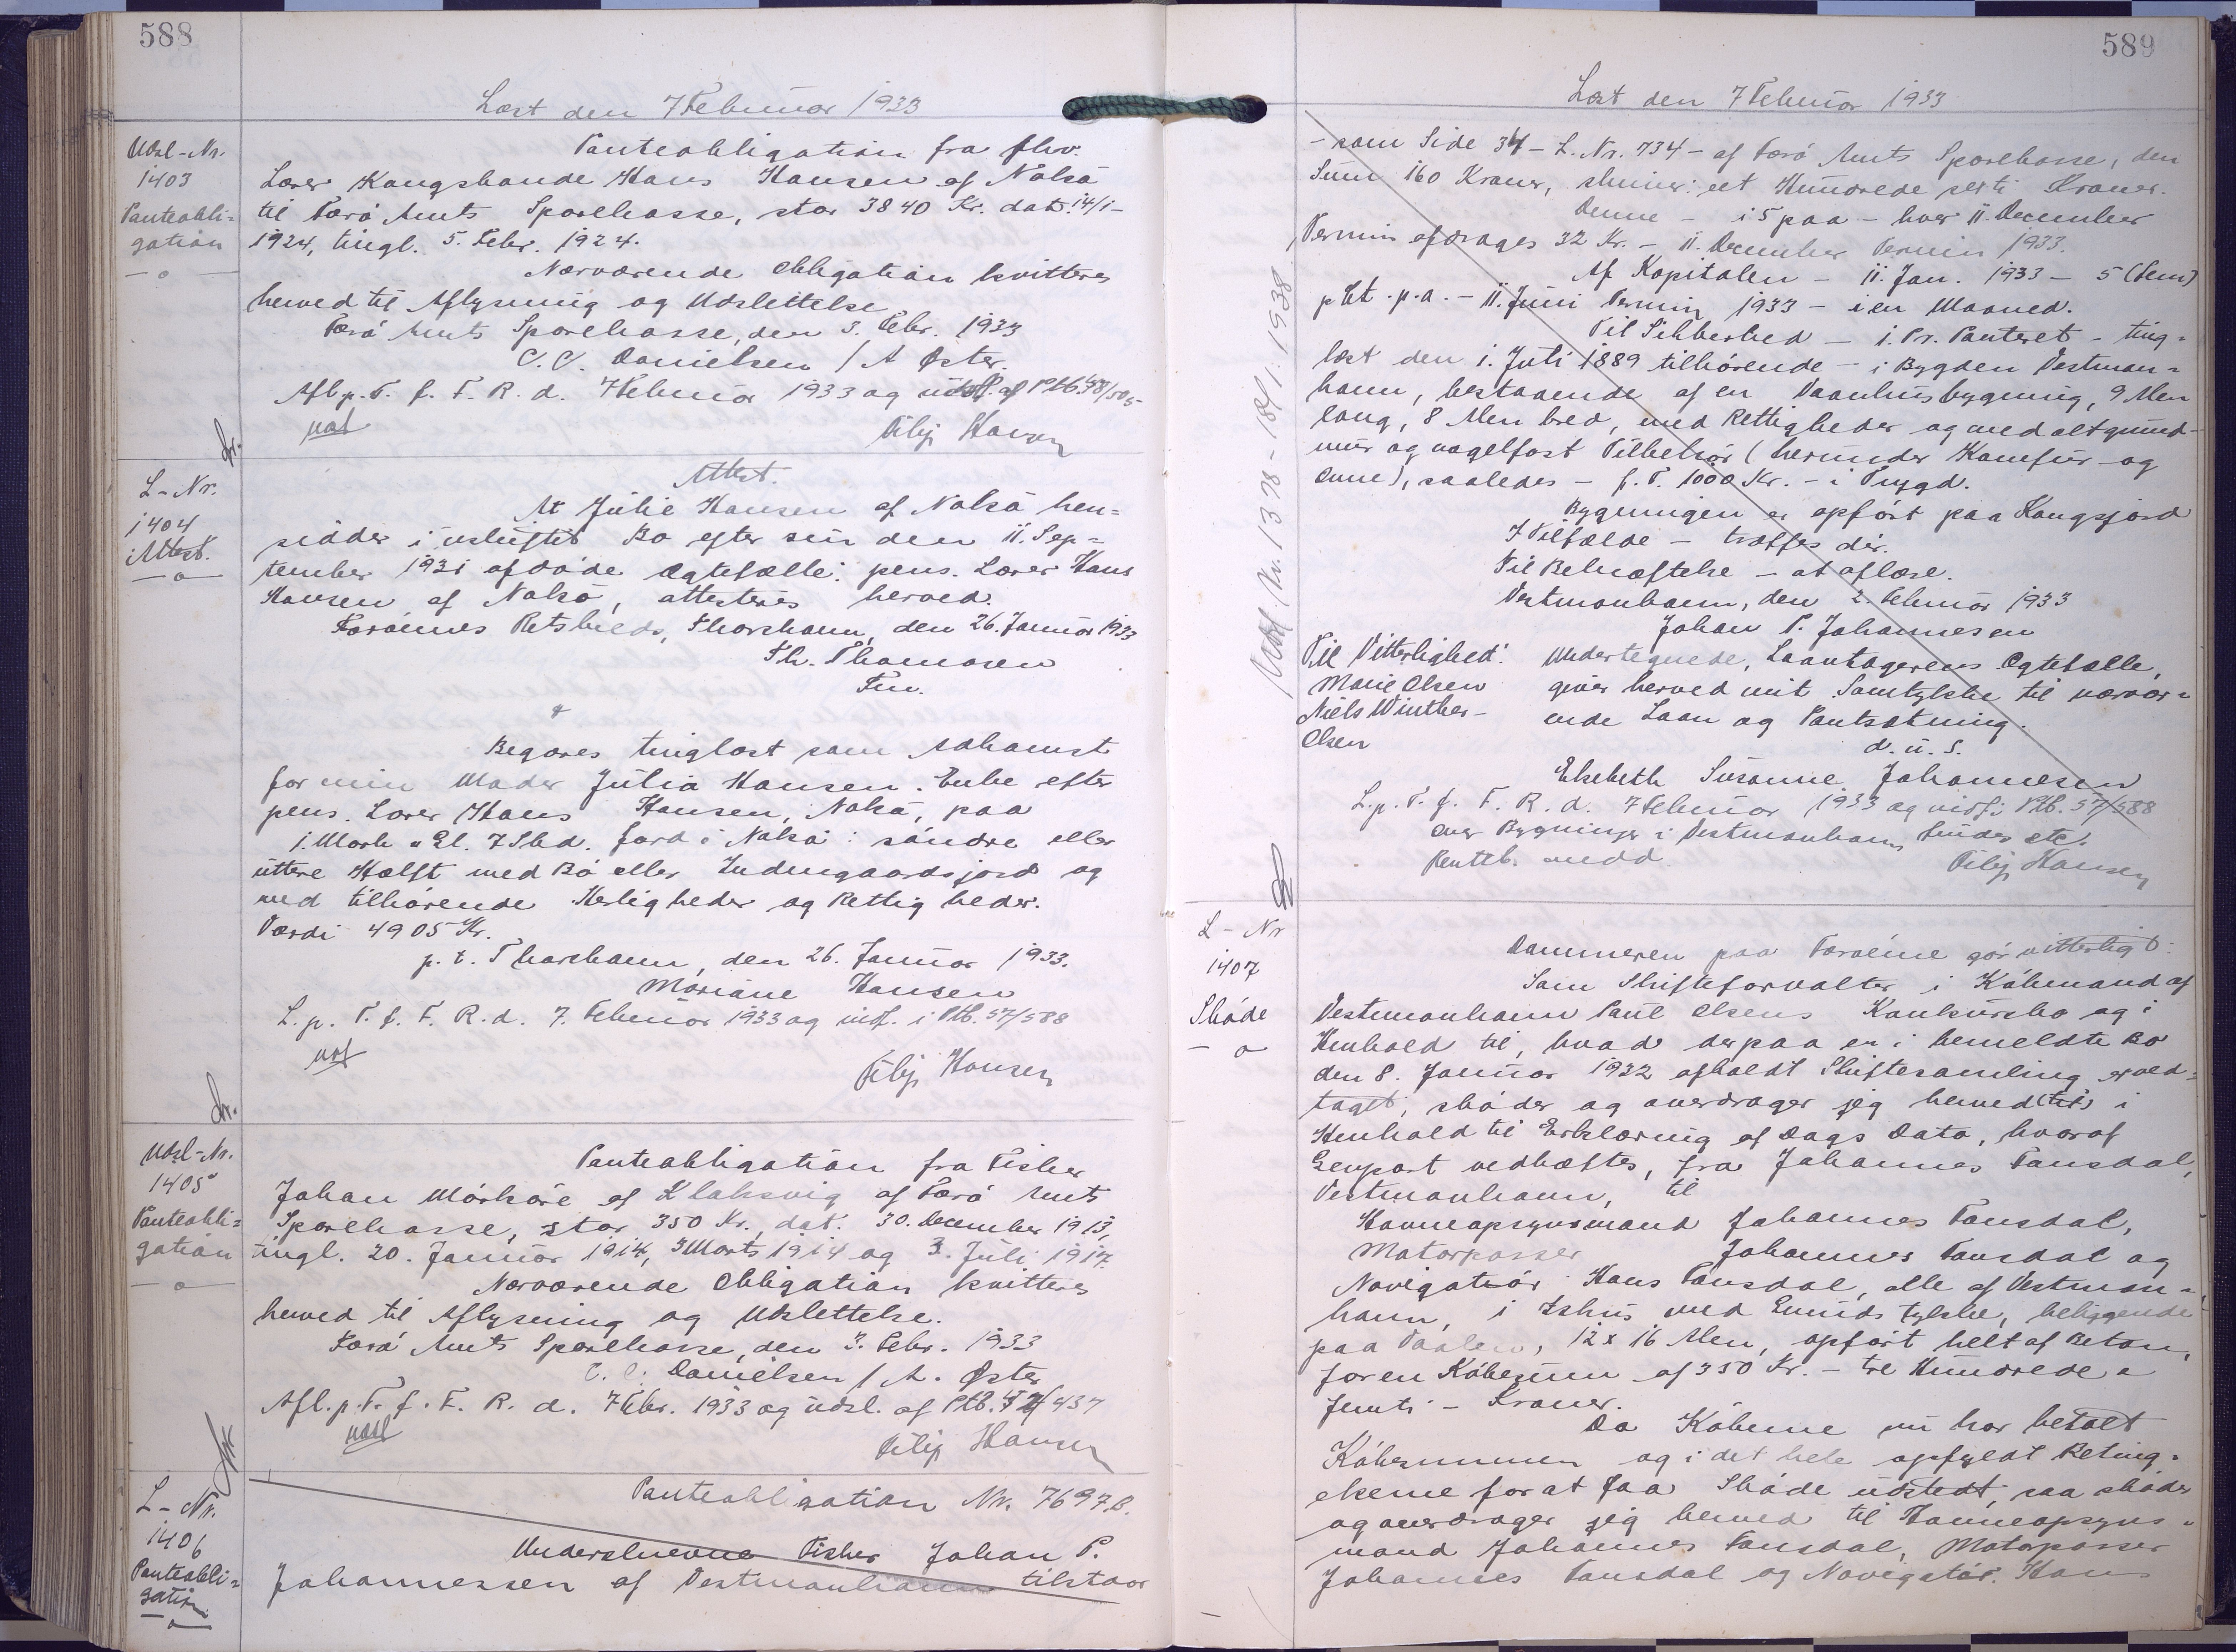 588
Læst den 7 Februar 1933
Udsl-Nr.
1403
Panteobli=
gation
Panteobligation fra fhv.
Lærer Kongsbonde Hans Hansen af Nolsö
til Færö Amts Sparekasse, stor 3840 Kr. dat. 14/1-
1924, tingl. 5. Febr. 1924.
Nærværende Obligation kvitteres
herved til Aflysning og Udslettelse
Færö Amts Sparekasse, den 3. Febr. 1933
C. C. Danielsen / A Öster
Afl. p. T. f. F. R. d. 7 Februar 1933 og udsl. af Ptb.
Filip Hansen
L-Nr.
1404
Attest.
Attest.
At Julie Hansen af Nolsö hen=
sidder i uskiftet Bo efter sin den 11. Sep=
tember 1931 afdöde Ægtefælle: pens. Lærer Hans
Hansen af Nolsö, attesteres herved.
Færöernes Retskreds, Thorshavn, den 26. Januar 1933
Th. Thomasen
Fm.
Begæres tinglæst som Adkomst
for min Moder Julia Hansen. Enke efter
pens. Lærer Hans Hansen, Nolsö, paa
1 Mark " Gl. 7 Skd. Jord i Nolsö: söndre eller
üttere Hælft med Bö eller Indengaardsjord og
med tilhörende Herligheder og Rettigheder.
Værdi 4905 Kr.
p. t. Thorshavn, den 26. Januar 1933.
Mariane Hansen
L. p. T. f. F. R. d. 7. Februar 1933 og indf. i Ptb. 57/588
Filip Hansen
Udsl-Nr.
1405
Panteobli=
gation
Panteobligation fra Fisker
Johan Mörköre af Klaksvig af Færö Amts
Sparekasse, stor 350 Kr., dat. 30. December 1913,
tingl. 20. Januar 1914, 3 Marts 1914 og 3. Juli 1917.
Nærværende Obligation kvitteres
herved til Aflysning og Udslettelse.
Færö Amts Sparekasse, den 3. Febr. 1933
C. C. Danielsen / A. Öster
Afl. p. T. f. F. R. d. 7 Febr. 1933 og udsl. af Ptb.
Filip Hansen
L-Nr.
1406
Panteobli=
gation
Panteobligation Nr. 7697.B.
Underskrevne Fisker Johan P.
Johannessen af Vestmanhavn tilstaar
589
Læst den 7 Februar 1933
- som Side 34 - L. Nr. 734 - af Færö Amts Sparekasse, den
Sum 160 Kroner, skriver: eet Hundrede seksti Kroner.
Denne - i 5 paa - hver 11. December
Termin afdrages 32 Kr. - 11. December Termin 1933.
Af Kapitalen - 11. Jan. 1933 - 5 (fem)
pCt. p.a. - 11. Juni Termin 1933 - i en Maaned.
Til Sikkerhed - 1. Pr. Panteret - ting=
læst den 1. Juli 1889 tilhörende - i Bygden Vestman=
havn, bestaaende af en Vaanhusbygning, 9 Alen
lang, 8 Alen bred, med Rettigheder og med alt grund-
mur og nagelfast Tilbehör (herunder Komfur og
Ovne), saaledes - f. T. 1000 Kr. - i Trygd.
Bygningen er opfört paa Kongsjord
I Tilfælde - træffes dér.
Til Bekræftelse - at aflæse.
Vestmanhavn, den 2. Februar 1933
Johan P. Johannesen
Til Vitterlighed:
Marie Olsen
Niels Winther-
Olsen
Undertegnede, Laantagerens Ægtefælle,
giver herved mit Samtykke til nærvær=
ende Laan og Pantsætning.
d. u. S.
Elsebeth Susanne Johannesen
L. p. T. f. F. R. d. 7 Februar 1933 og indf. i Ptb. 57/588
over Bygninger i Vestmanhavn findes etc.
Rentb. medd.
Filip Hansen
Udsl Nr. 1378 - 18/1. 1938
L-Nr
1407
Sköde
Dommeren paa Færöerne gör vitterligt:
Som Skifteforvalter i Köbmand af
Vestmanhavn Poul Olsens Konkursbo og i
Henhold til, hvad derpaa er i bemeldte Bo
den 8. Januar 1932 afholdt Skiftesamling er ved=
taget, sköder og overdrager jeg herved (til) i
Henhold til Erklæring af Dags Dato, hvoraf
Genpart vedhæftes, fra Johannes Fonsdal,
Vestmanhavn, til
Havneopsynsmand Johannes Fonsdal,
Motorpasser Johannes Fonsdal og
Navigatör Hans Fonsdal, alle af Vestman=
havn, i Ishus med Grunds tykke, beliggende
paa 12 x 16 Alen, opfört helt af Beton,
for en Köbesum af 350 Kr. - tre Hundrede &
femti - Kroner.
Da Köberne nu har betalt
Köbesummen og i det hele opfyldt Beting-
elserne for at faa Sköde udstedt, saa sköder
og overdrager jeg herved til Havneopsyns=
mand Johannes Fonsdal, Motorpasser
Johannes Fonsdal og Navigatör Hans